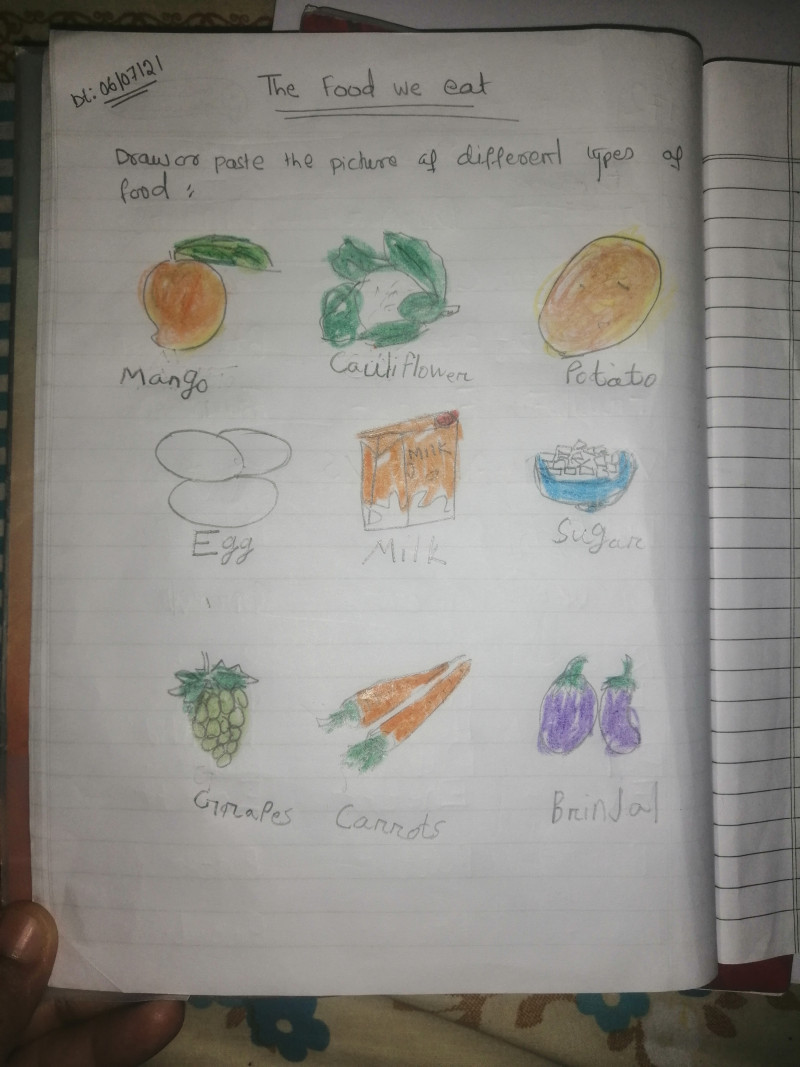 Dt: 06/07/21
The Food we eat
Draw or paste the picture of different types of
food :
Mango
Cauliflower
Potato
Milk
Egg
Milk
Sugar
Grrapes
Carrots
Brindal